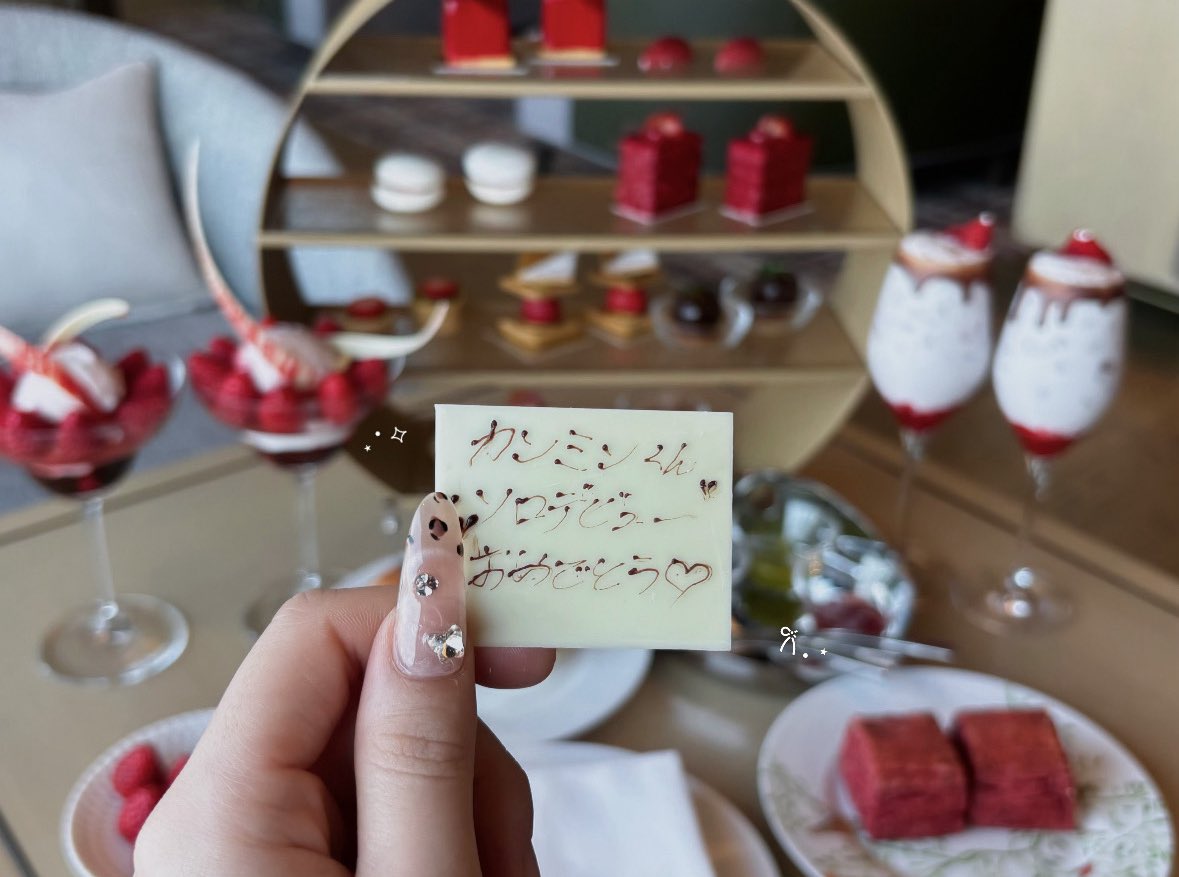 カンミンくん
ソロデビュー
おめでとう♡